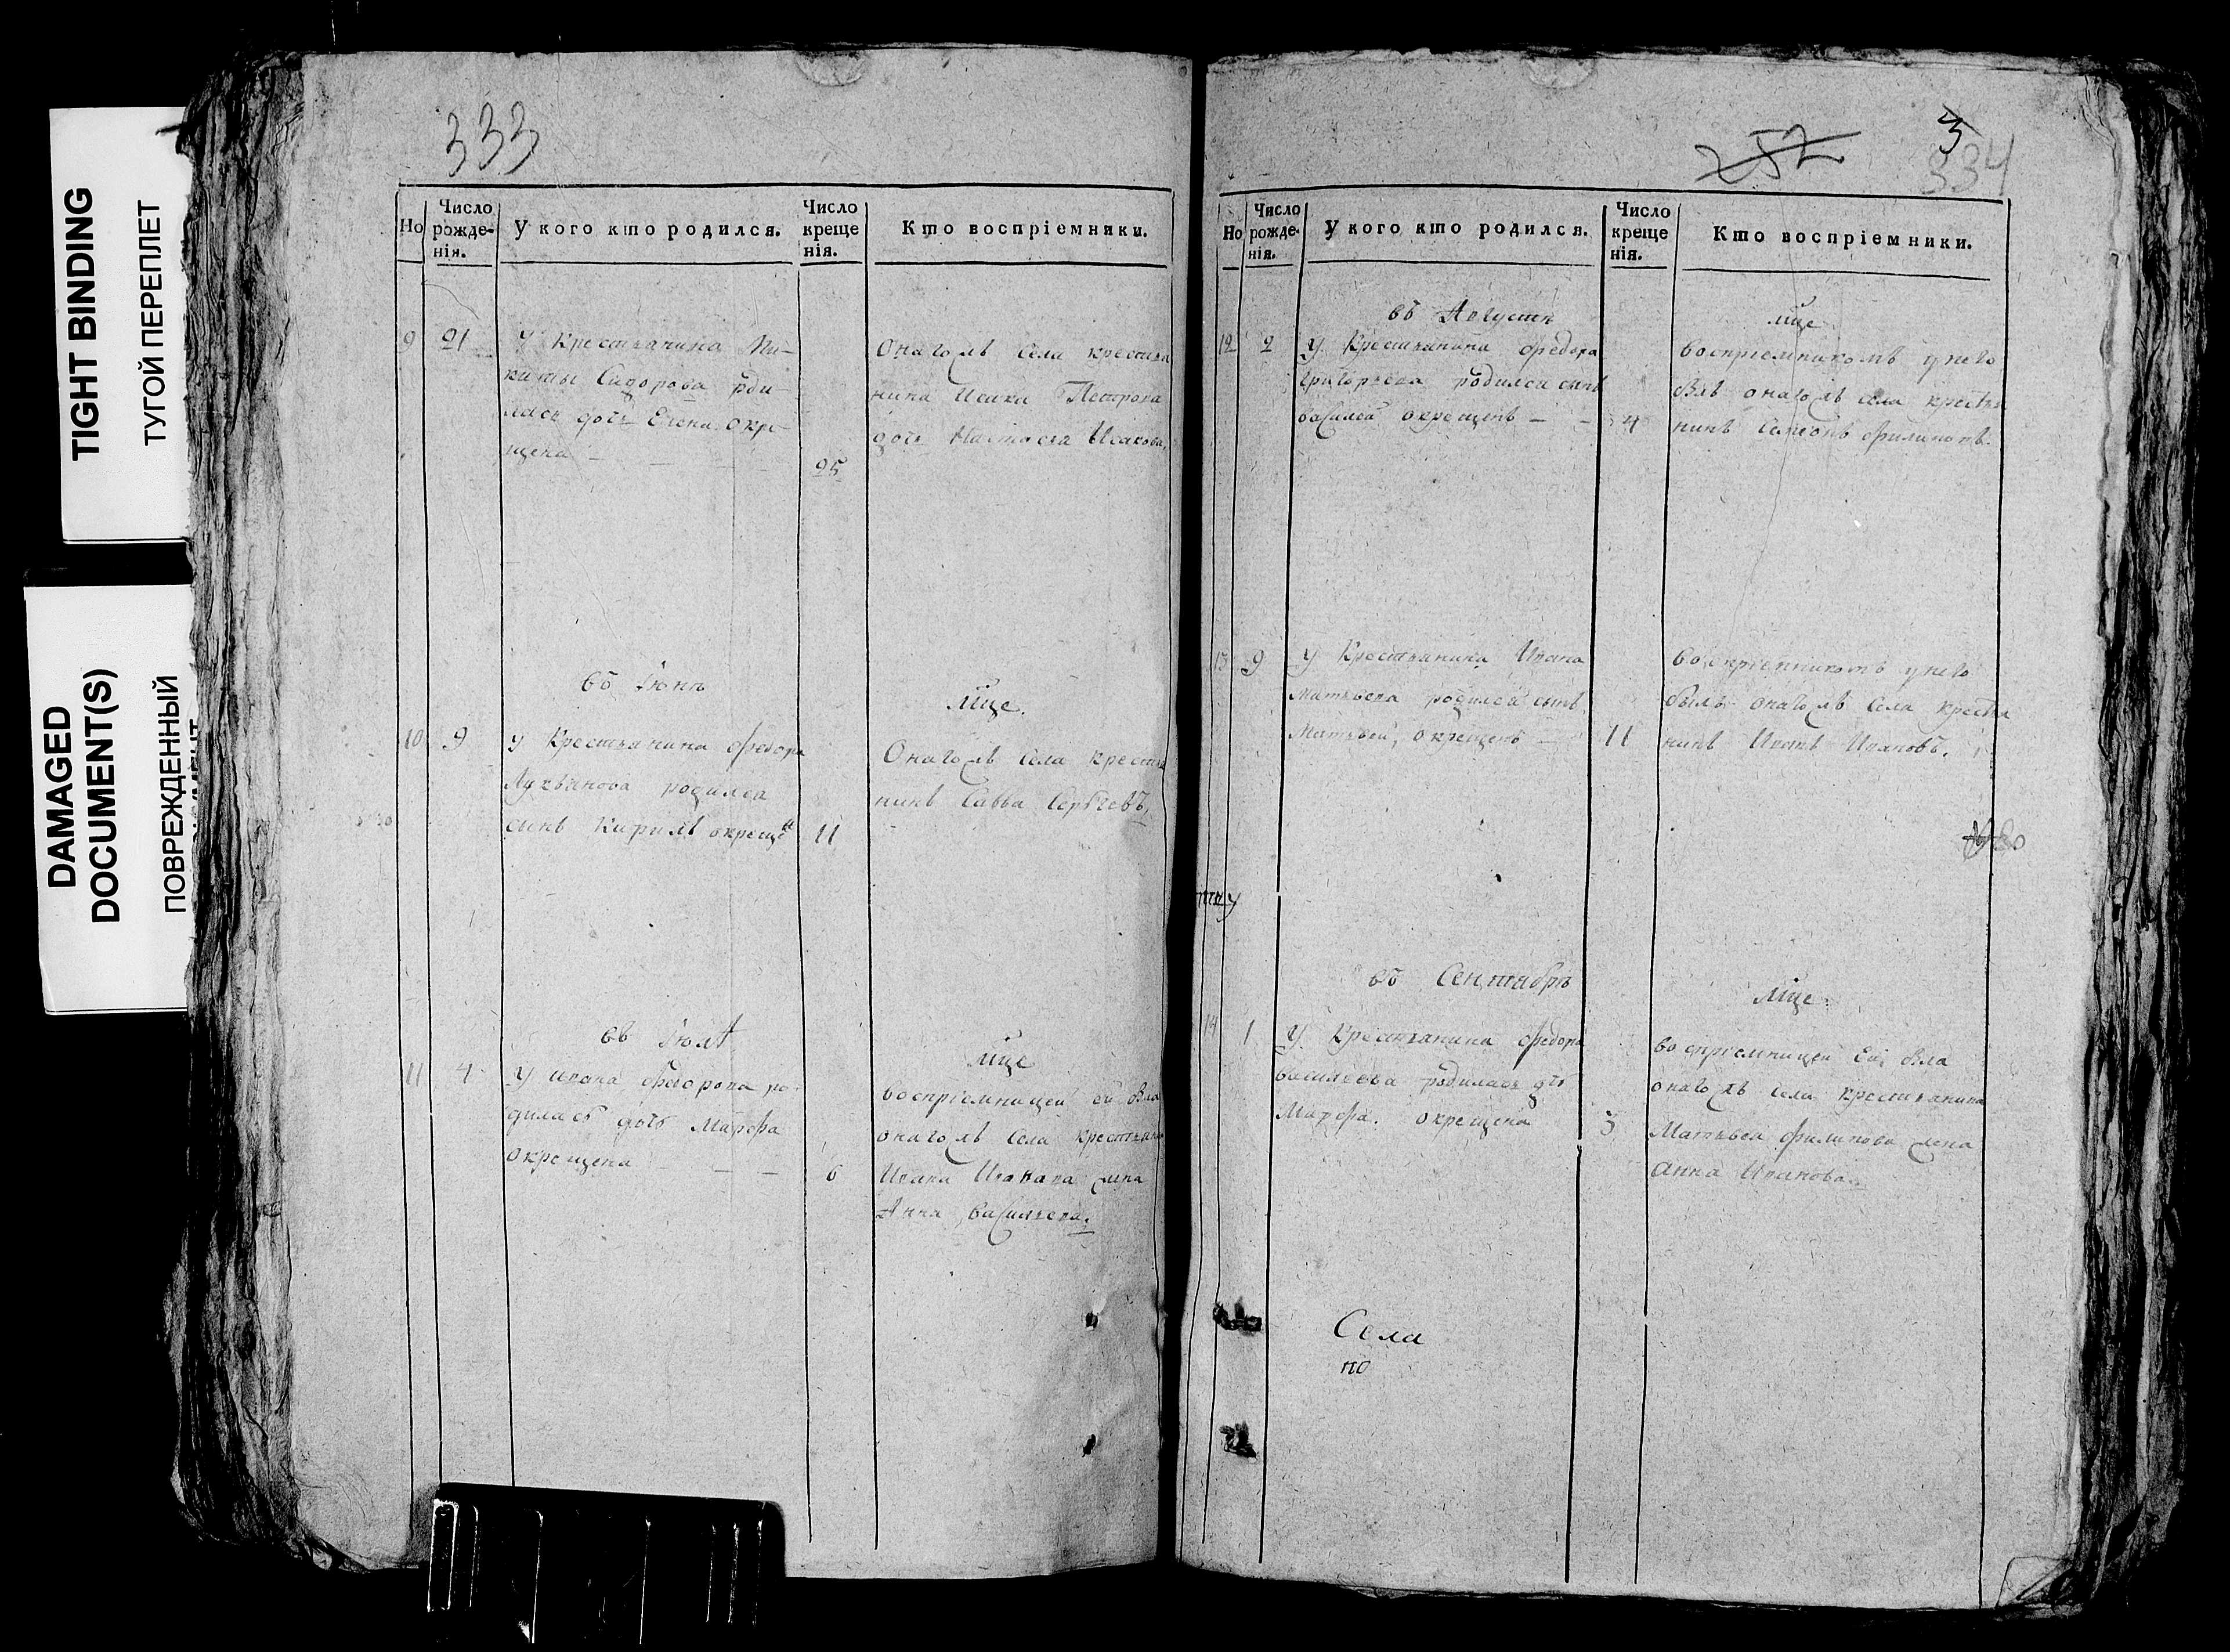 TIGHT BINDING
ТУГОЙ ПЕРЕПЛЕТ
DAMAGED
DOCUMENT(S)
ПОВРЕЖДЕННЫЙ
333
Но
Число
рожде-
нія.
У кого кто родился.
Число
креще
нія.
Кто воспріемники.
9 21
У Крестьянина Ни-
киты Сидорова роди-
лась дочь Елена окре-
щена — — —
25
Онагожъ села крестья
нина Исака Петрова
дочь Настасья Исакова.
въ Іюнѣ
мцѣ.
10 9
У Крестьянина Федора
Лукьянова родился
сынъ Кирилъ окреще
11
Онагожъ села крестья
нинъ Савва Сергѣевъ.
въ Іюлѣ
мцѣ
11 4
У Ивана Федорова ро-
дилась дочь Марфа
окрещена — — —
6
воспріемницей ей была
онагожъ села крестьянина
Ивана Иванова жена
Анна Васильева.
252
3
334
Но
Число
рожде-
нія.
У кого кто родился.
Число
креще
нія.
Кто воспріемники.
въ Августѣ
мцѣ
12 2
У Крестьянина Федора
Григорьева родился сынъ
Василей окрещенъ — —
4
воспріемникомъ у него
былъ онагожъ села крестья
нинъ Семіонъ Филиповъ.
13 9
У Крестьянина Ивана
Матвьева родился сынъ
Матвьей, окрещенъ —
11
воспріемникомъ у него
былъ онагожъ села крестья
нинъ Иванъ Ивановъ.
въ Сентябрѣ
мцѣ
14 1
У Крестьянина Федора
Васильева родилась дочь
Марфа. окрещена
3
воспріемницей ей была
онагожъ села крестьянина
Матвьея Филипова жена
Анна Иванова.
Села
по